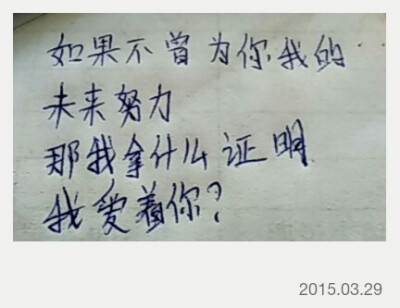 如果不曾为你我的
未来努力
那我拿什么证明
我爱着你?
2015.03.29